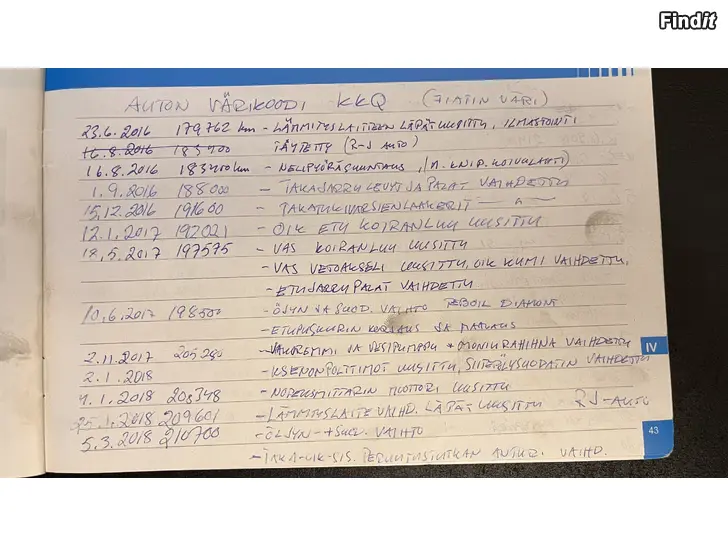 Findit
AUTON VÄRIKOODI KKQ (FIATIN VÄRI)
23.6.2016 179762 km - LÄMMITYSLAITTEEN LÄPÄT UUSITTU, ILMASTOINTI
16.8.2016 183400 TÄYTETTY (R-J AUTO)
16.8.2016 183400 km - NELIPYÖRÄSUUNTAUS,
1.9.2016 188000 - TAKAJARRULEVYT JA PALAT VAIHDETTU
15.12.2016 191600 - TAKATUKIVARSIENLAAKERIT — " —
12.1.2017 192021 - OIK ETU KOIRANLUU UUSITTU
18.5.2017 197575 - VAS KOIRANLUU UUSITTU
- VAS VETOAKSELI UUSITTU, OIK KUMI VAIHDETTU,
- ETUJARRUPALAT VAIHDETTU
10.6.2017 198500 - ÖLJYN JA SUOD. VAIHTO TEBOIL DIAMOND
- ETUPUSKURIN KORJAUS JA MAALAUS
2.11.2017 - JAKOREMMI JA VESIPUMPPU + MONIURAHIHNA VAIHDETTU
2.1.2018 - KSENONPOLTTIMOT UUSITTU, SIITEPÖLYSUODATIN VAIHDETTU
4.1.2018 205348 - NOPEUSMITTARIN MOTTORI UUSITTU
2018 209601 - LÄMMITYSLAITE VAIHD. LÄPÄT UUSITTU RJ-AUTO
5.3.2018 210700 - ÖLJYN- + SUOD. VAIHTO
- TAKA-OIK-SIS. PERUUTUSTUTKAN ANTUR. VAIHD.
IV
43